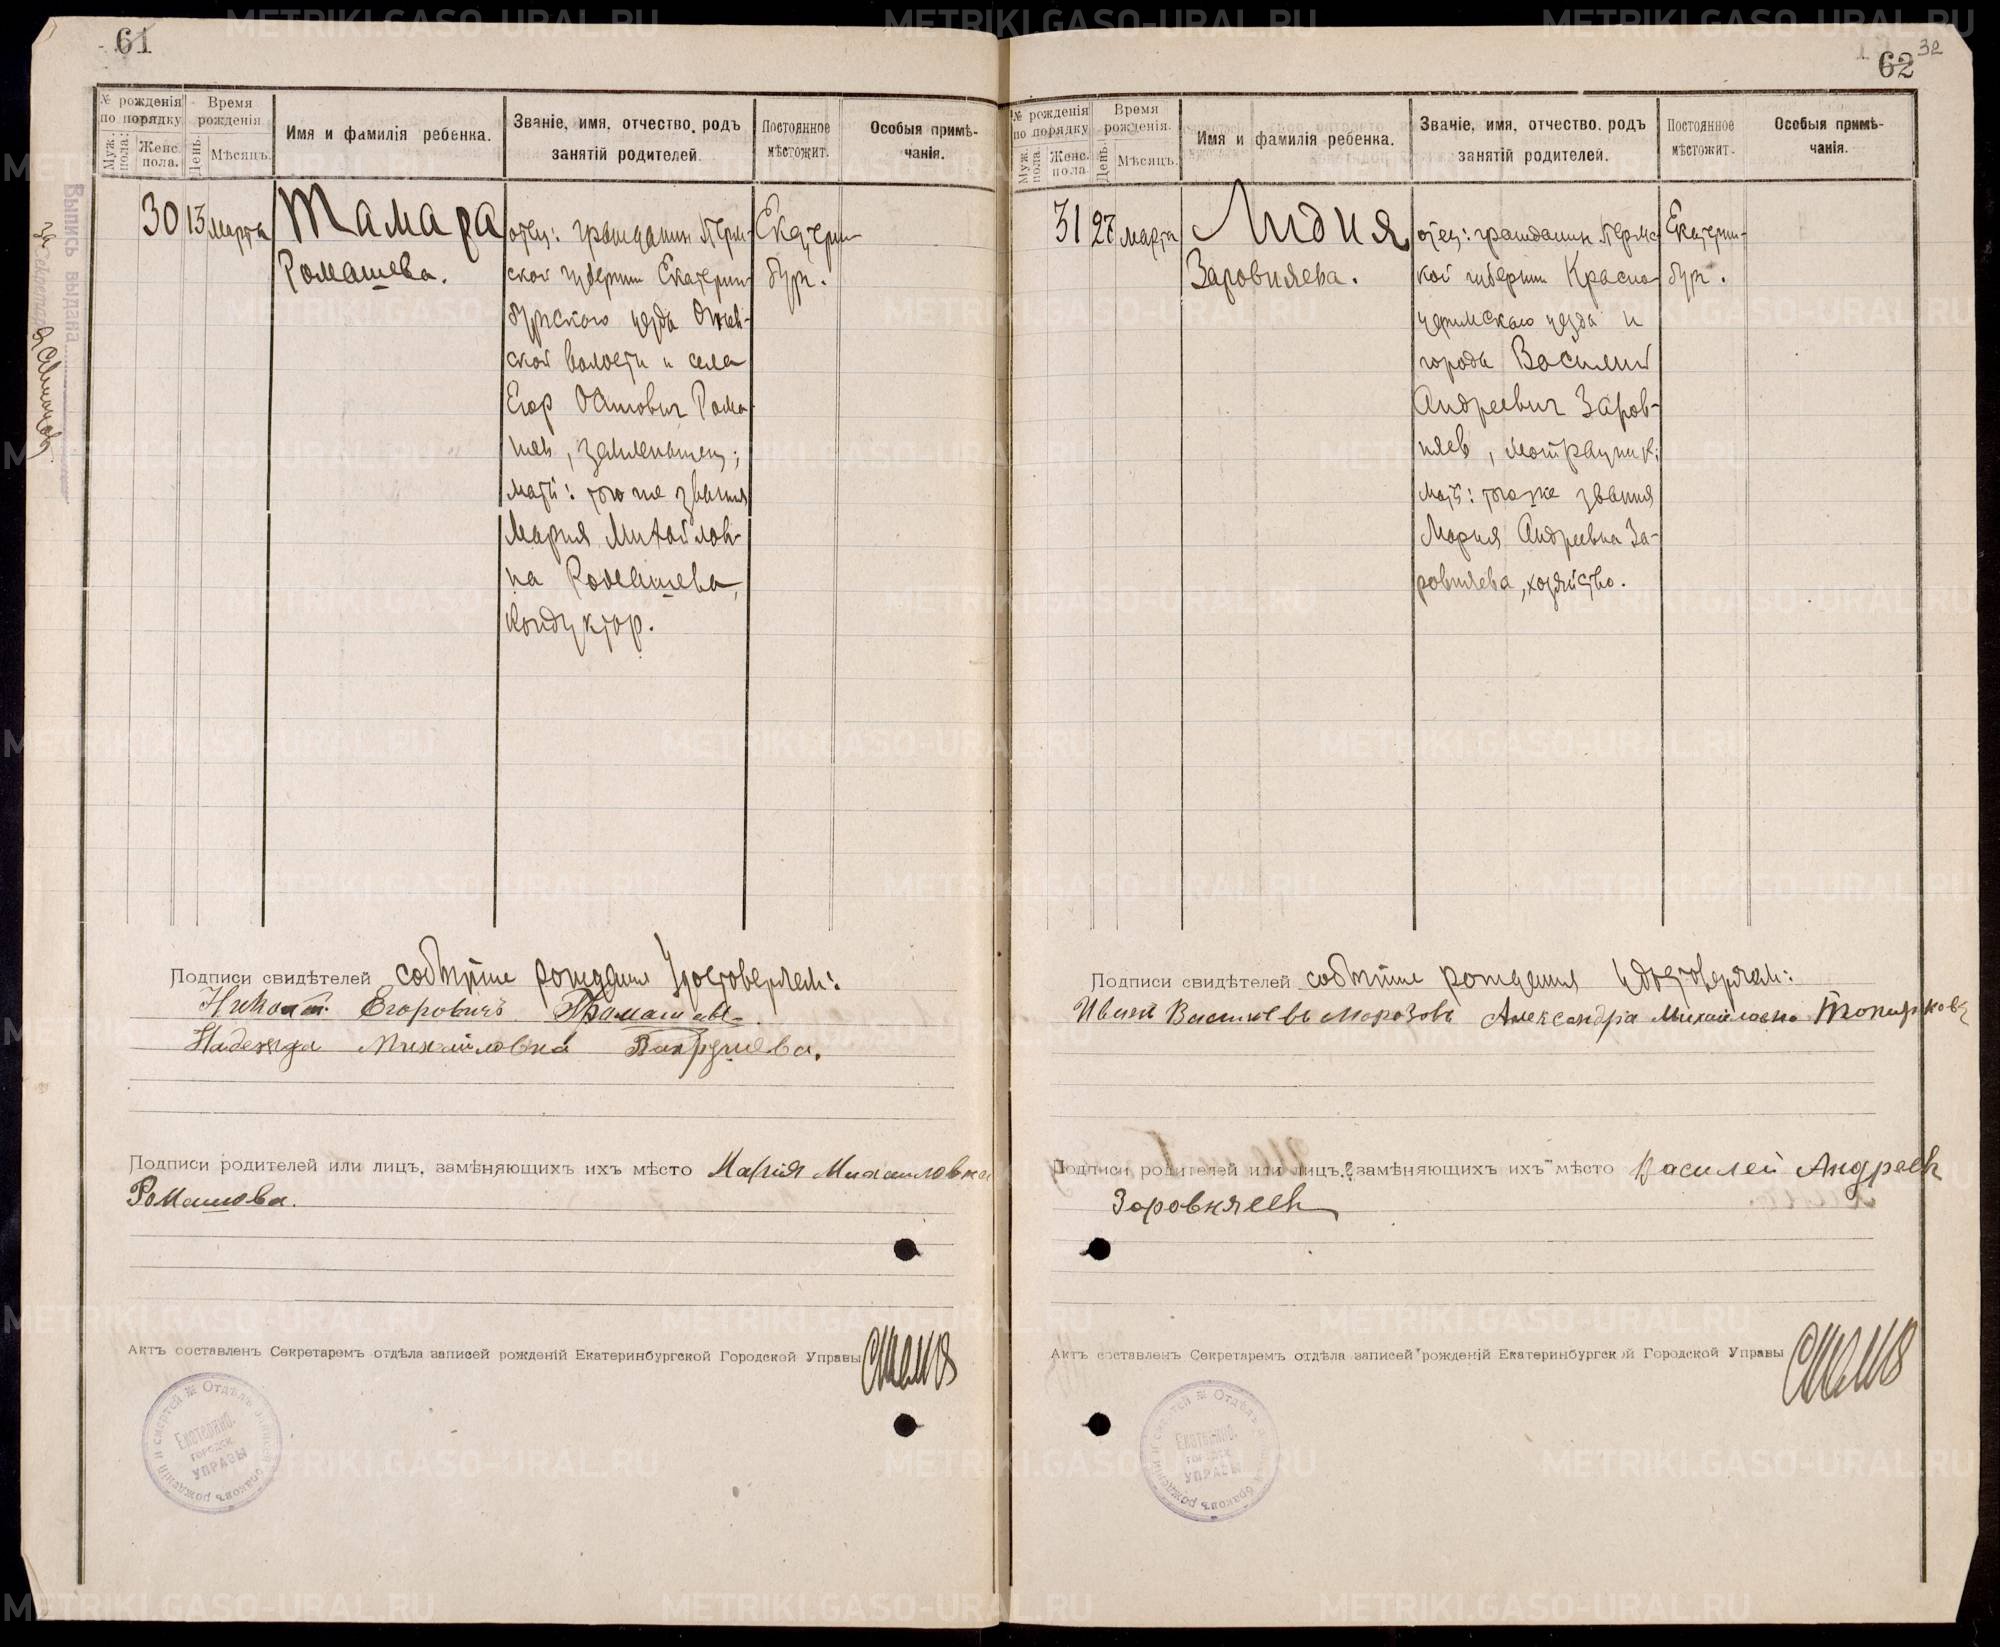 61
№ рожденія по порядку
Муж. пола.
Женс. пола.
Время рожденія.
День.
Мѣсяцъ.
Имя и фамилія ребенка.
Званіе, имя, отчество, родъ
занятій родителей.
Постоянное
мѣстожит.
Особыя примѣ-
чанія.
Выпись выдана
30 13 марта
Тамара
Ромашева.
отец: гражданин Перм-
ской губернии Екатерин-
бургского уезда
ской волости и села
Егор Рома-
шев, землепашец;
мать: того же звания
Мария Михайлов-
на Ромашева,
кондуктор.
Екатерин-
бург.
Подписи свидѣтелей событие рождения удостоверяем:
Егоровичъ
Надежда Михайловна
Подписи родителей или лицъ, замѣняющихъ ихъ мѣсто Мария Михаиловна
Ромашова.
Актъ составленъ Секретаремъ отдѣла записей рожденій Екатеринбургской Городской Управы
Отдѣлъ записей браковъ рожденій и смертей
Екатеринб.
городск.
УПРАВЫ
62
32
№ рожденія по порядку
Муж. пола.
Женс. пола.
Время рожденія.
День.
Мѣсяцъ.
Имя и фамилія ребенка.
Званіе, имя, отчество, родъ
занятій родителей.
Постоянное
мѣстожит.
Особыя примѣ-
чанія.
31 27 марта
Лидия
Заровняева.
отец: гражданин Пермс-
кой губернии Красно-
уфимскаго уезда и
города Василий
Андреевич Заров-
няев,
мать: тогоже звания
Мария Андреевна За-
ровняева, хозяйство.
Екатерин-
бург.
Подписи свидѣтелей событие рождения удостоверяем:
Иванъ Васильевъ Морозовъ Александра Михайловна
Подписи родителей или лицъ, замѣняющихъ ихъ мѣсто Василей Андреев
Заровняев
Актъ составленъ Секретаремъ отдѣла записей рожденій Екатеринбургской Городской Управы
Отдѣлъ записей браковъ рожденій и смертей
Екатеринб.
городск.
УПРАВЫ
METRIKI.GASO-URAL.RU